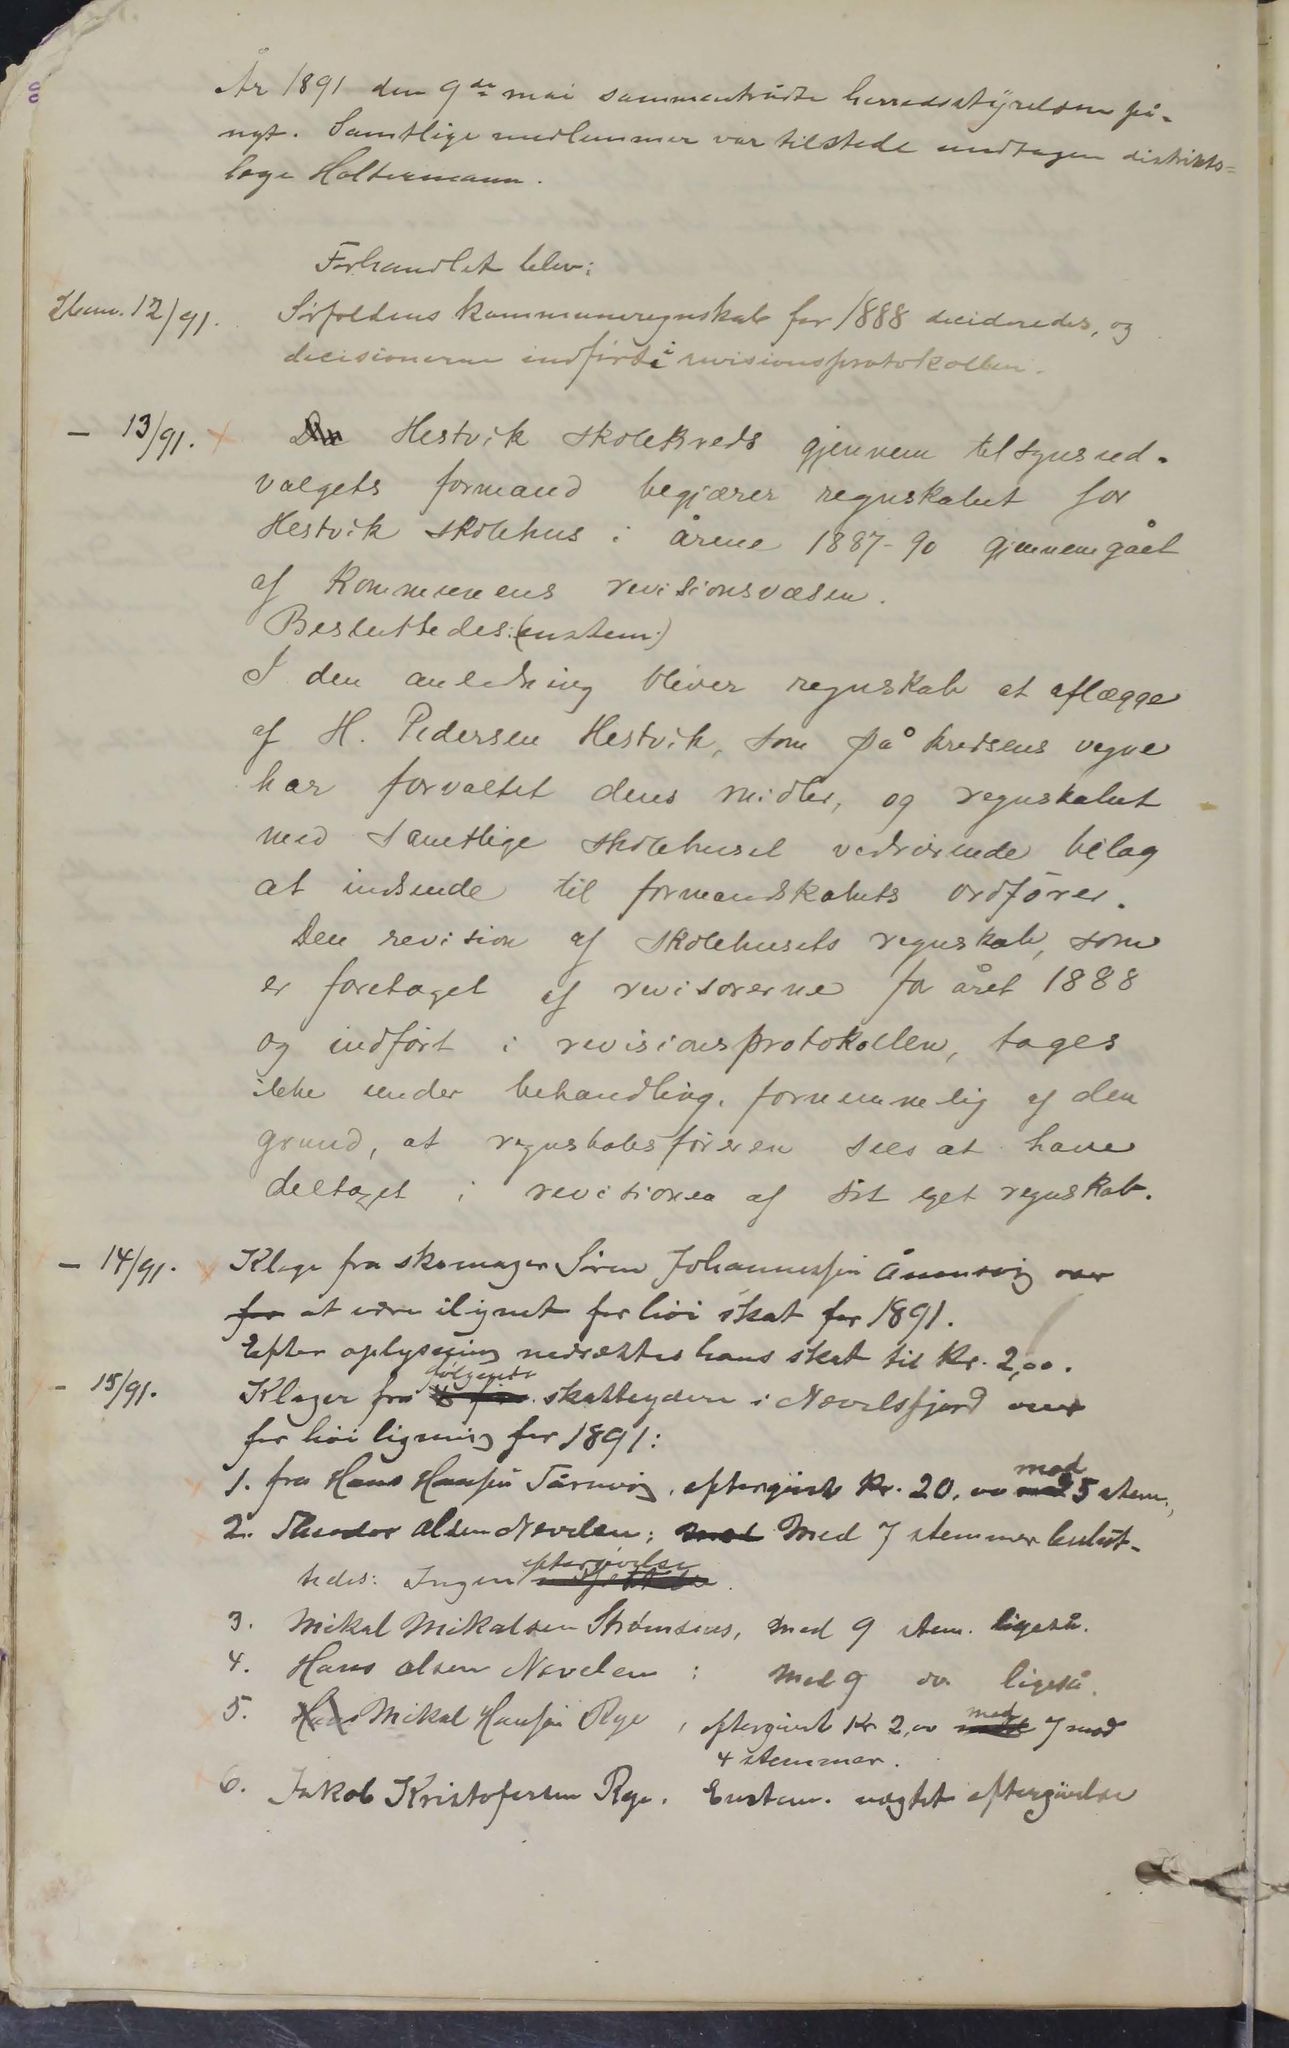 År 1891 den 9de mai sammentrådte herredsstyrelsen på-
nyt. Samtlige medlemmer var tilstede undtagen distrikts-
læge Holtermann.
Forhandlet blev:
12/91. Sørfoldens kommuneregnskab for 1888 decideredes, og
decisionerne indført i revisionsprotokollen.
- 13/91. Hestvik skolekreds gjennem tilsynsud-
valgets formand begjærer regnskabet for
Hestvik skolehus i årene 1887-90 gjennemgået
af kommunens revisionsvæsen.
Besluttedes: (enstem.)
I den anledning bliver regnskab at aflægge
af H. Pedersen Hestvik, som på kredsens vegne
har forvaltet dens midler, og regnskabet
med samtlige skolehuset vedrørende bilag
at indsende til formandskabets ordfører.
Den revision af skolehusets regnskab, som
er foretaget af revisorerne for året 1888
og indført i revisionsprotokollen, tages
ikke under behandling, fornemmelig af den
grund, at regnskabsføreren sees at have
deltaget i revisionen af sit eget regnskab.
- 14/91. Klage fra skomager Sören Johannessen Ånensvig over
for at være ilignet for höi skat for 1891.
Efter oplysning nedsættes hans skat til Kr. 2,00.
- 15/91. Klager fra følgende skatteydere i Nævelsfjord over
for höi ligning for 1891:
1. fra Hans Hansen Tårnvig, eftergivet kr. 20,00 mod 5 stem.,
2. Theodor Olsen Nevelen: Med 7 stemmer beslut-
tedes: Ingen eftergivelse.
3. Mikal Mikalsen Strømsnes, med 9 stem. ligeså.
4. Hans Olsen Nevelen: med 9 do ligeså.
5. Mikal Hansen Rye, eftergivet Kr 2,00 med 7 mod
4 stemmer.
6. Jakob Kristofersen Rye. Enstem. nægtet eftergivelse